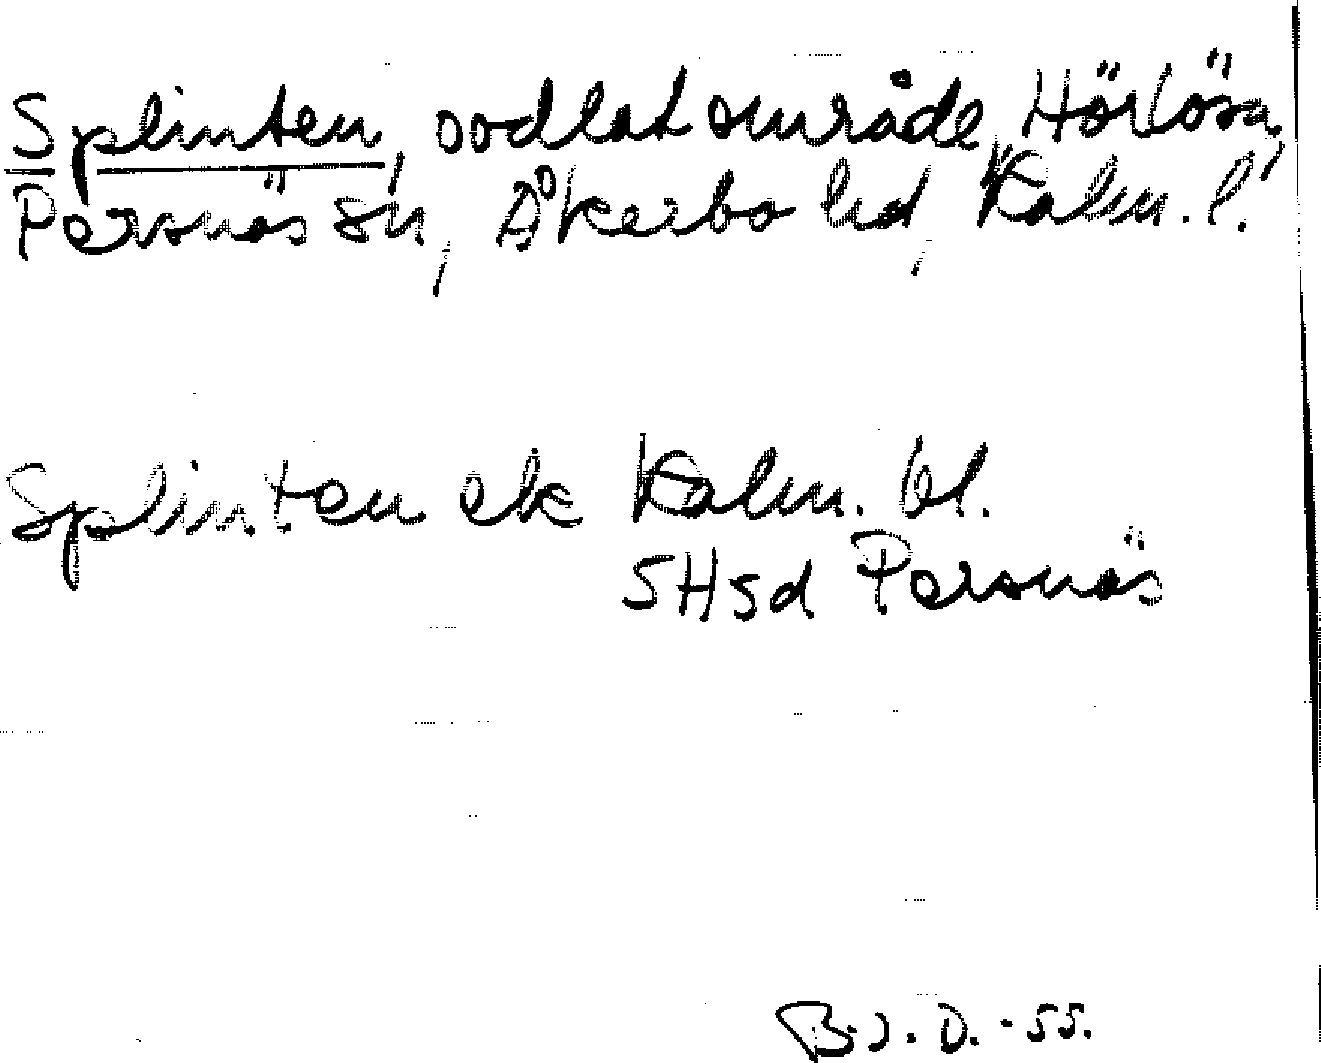 Splinten, oodlat område, Hörlösa,
Persnäs sn, Åkerbo hd, Kalm. l.
Splinten ek Kalm. bl.
SHsd Persnäs
B.J.D.-55.